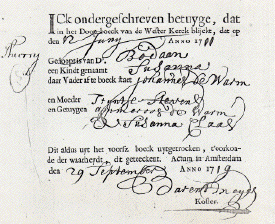 ICk ondergeschreven betuyge, dat
in het Doop-boeck van de Wester Kerck blijckt, dat op
den 12 Juny ANNO 1711
Gedoopt is van Dº. Bodaan
Een Kindt genaamt Susanna
daar Vader af te boek staet Johannes de Warm
en Moeder Tryntje Stevens
en Getuygen de Warm
Susanna
Dit aldus uyt het voorsz. boek uytgetrocken, t'oorkon-
de waarheydt, dit geteeckent. Actum in Amsterdam
den 29 September ANNO 1719
Barent
Koster.